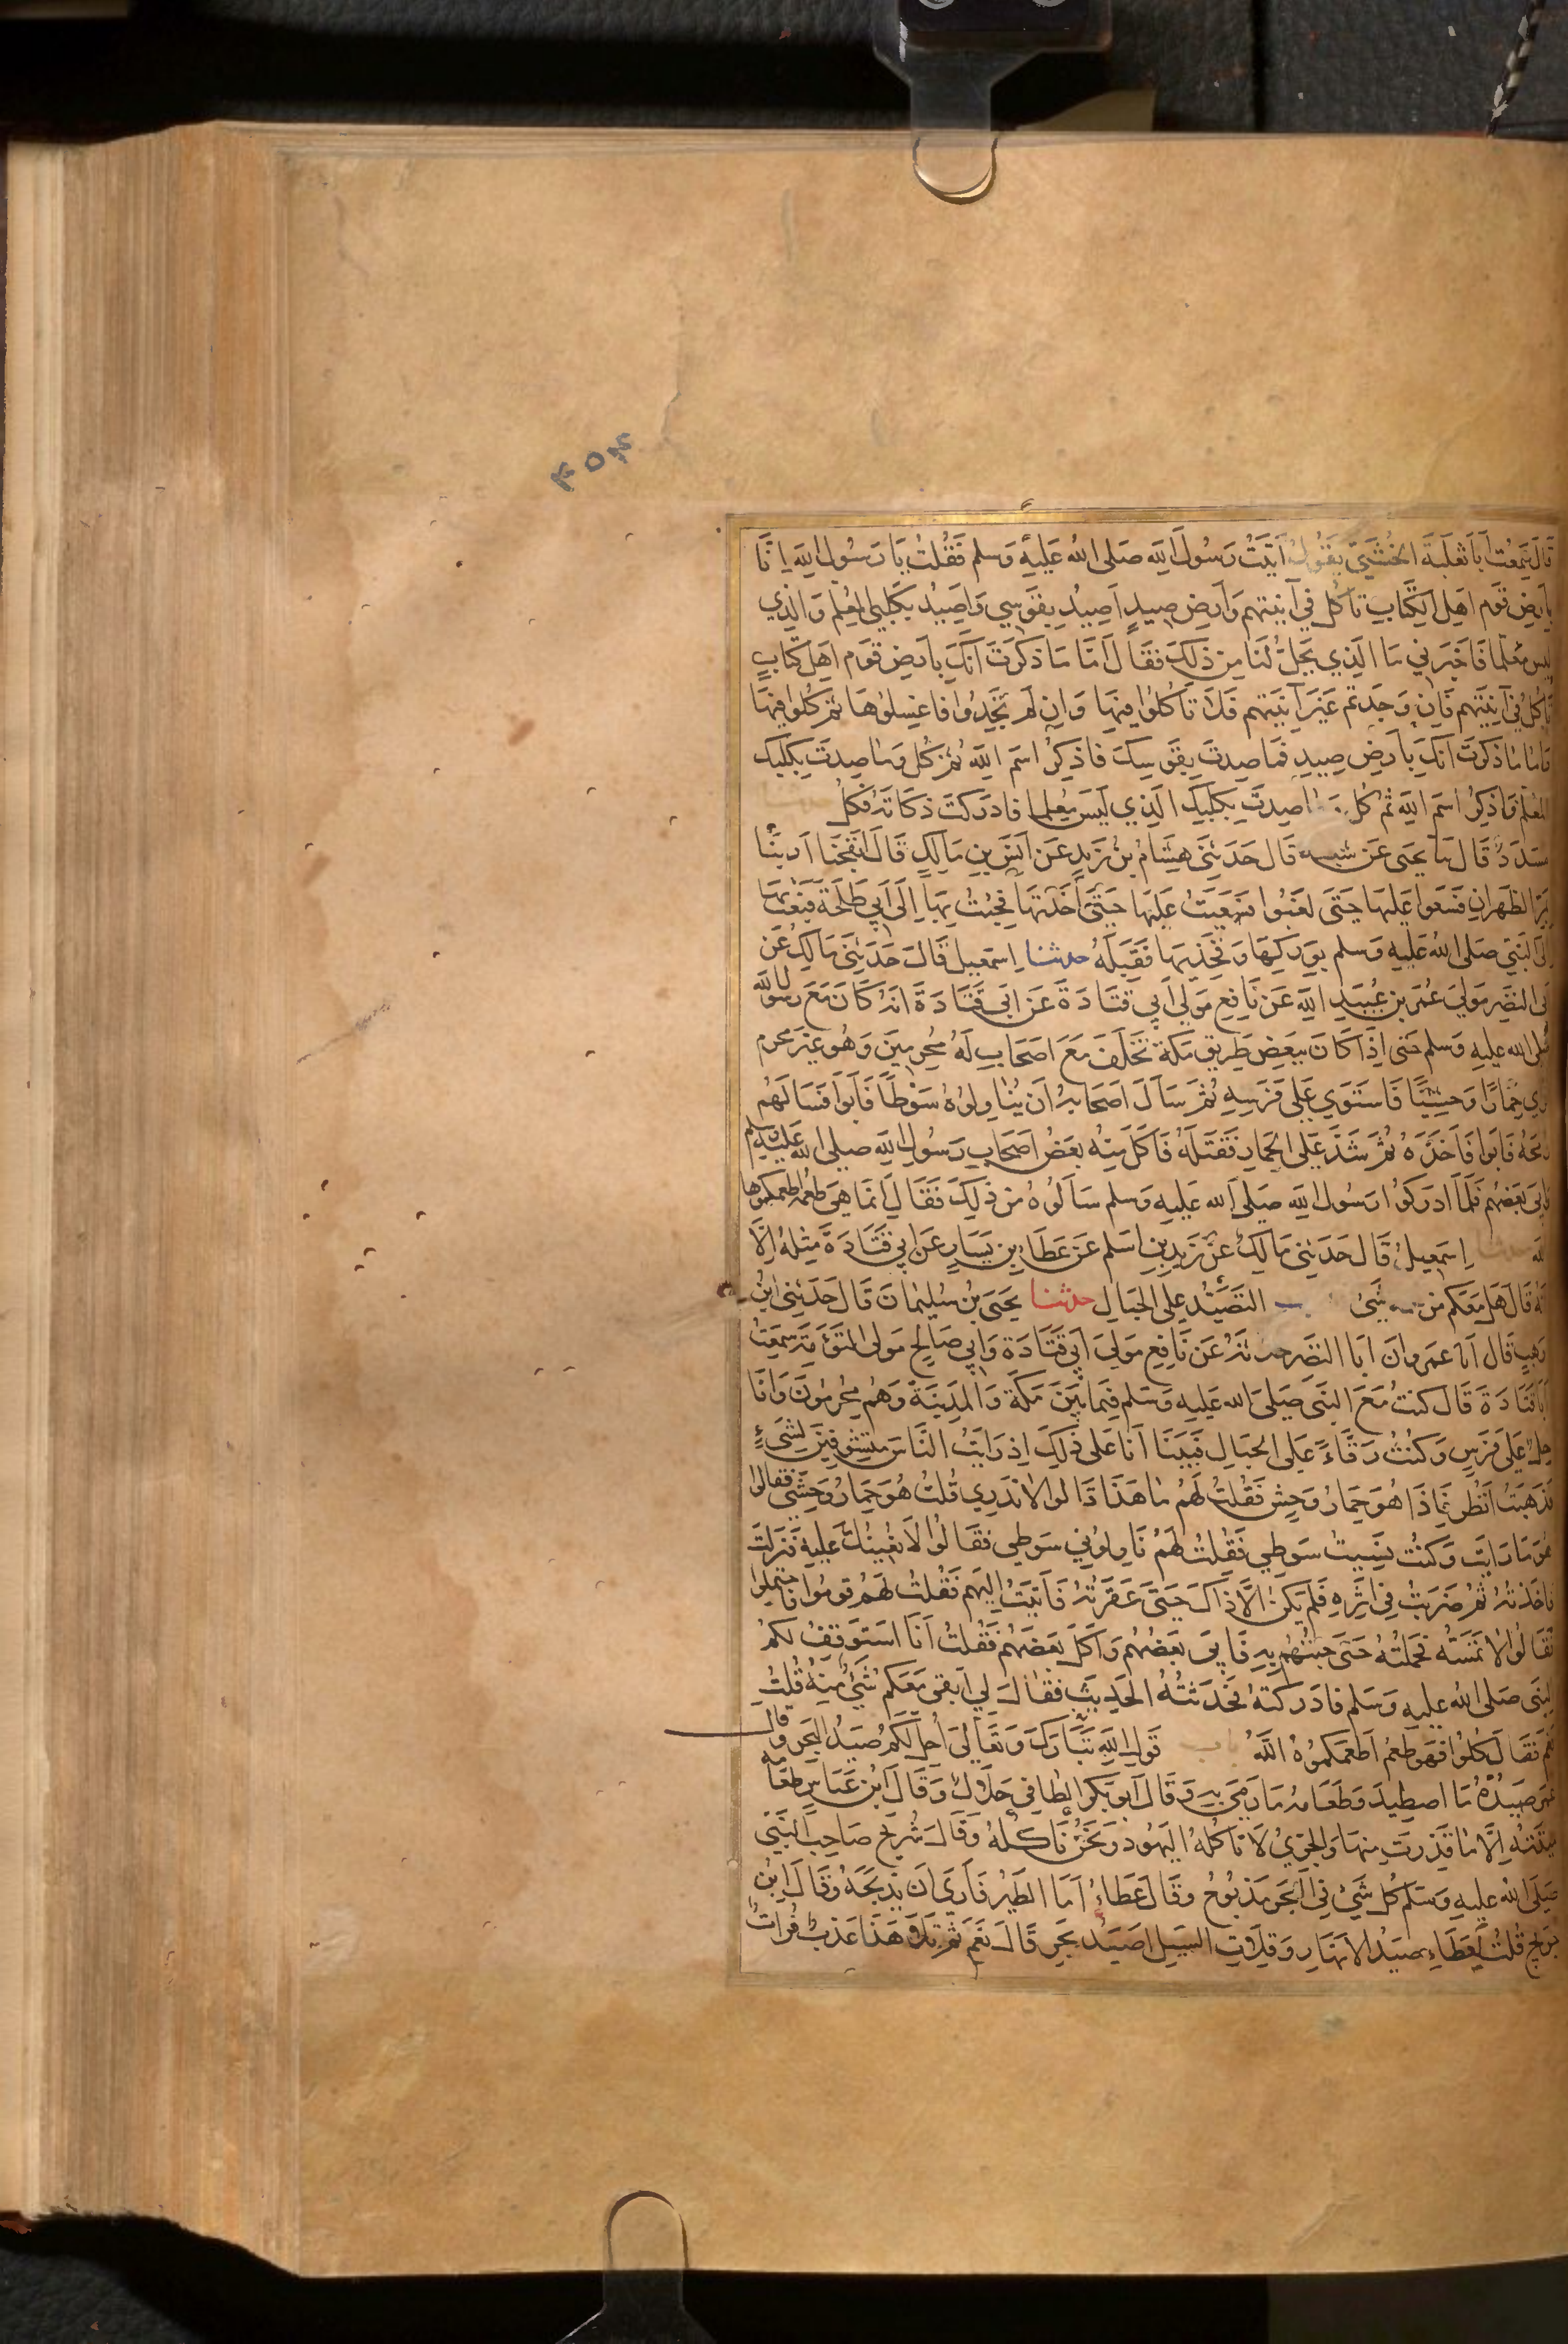 ٤٥٤
قَالَ سَمِعْتُ اَبَا ثَعْلَبَةَ الخُشَنِيَّ يَقُولُ اَتَيْتُ رَسُولَ اللهِ صَلى اللهُ عَليْهِ وَسلم فَقُلتُ يَا رَسُولَ اللهِ اِنَّا
بِاَرضِ قَومٍ اهلِ الكِتَابِ نَأكُل فِي آنِيَتِهِم وَاَرضِ صَيدٍ اَصِيدُ بِقَوسِي وَاَصِيدُ بِكَلبِي المُعَلَّم وَالَّذِي
لَيسَ مُعَلَّمًا فَاَخبِرنِي مَا الَّذِي يَحِلُّ لَنَا مِن ذَلكَ فَقَالَ اَمَّا مَا ذَكَرتَ اَنَّكَ بِاَرضِ قَوم اَهلِ كِتَابٍ
تَأكُلُ فِي آنِيَتِهِم فَاِن وَجَدتم غَيرَ آنِيَتِهِم فَلَا تَأكُلُوا فِيهَا وَاِن لَم تَجِدُوا فَاغسِلُوهَا ثمَّ كُلُوا فِيهَا
وَامَّا مَا ذَكَرتَ اَنَّكَ بِاَرضِ صَيدٍ فَمَا صِدتَ بِقَوسِكَ فَاذكُرِ اسمَ اللهِ ثُمَّ كُل وَمَا صِدتَ بِكَلبِكَ
المُعَلَّمِ فَاذكُرِ اسمَ اللهِ ثُمَّ كُل وَمَا صِدتَ بِكَلبِكَ الَّذِي لَيسَ مُعَلمًا فَادرَكتَ ذَكَاتَهُ فَكُل
مسَدَّدٌ قَالَ نا يحيى عَن شعبة قَال حَدَّثَنِي هِشَامُ بنُ زَيدٍ عَن اَنَسِ بنِ مَالِكٍ قَالَ انفَجنَا اَرنَبًا
بِمَرِّ الظَهرَانِ فَسَعَوا عَلَيهَا حَتَّى لَغِبُوا فسَعَيتُ عَليهَا حَتَّى اَخَذتُهَا فَجِئتُ بِهَا اِلَى اَبِي طَلحَةَ فبَعَثَ
اِلَى النَبيِّ صَلى اللهُ عَليهِ وَسلم بِوَرِكَيهَا وَفَخِذَيهَا فَقَبِلَهُ حدثنا اِسمعِيل قَالَ حَدَّثَنِي مَالِكٌ عَن
اَبِي النَّضرِ مَولَى عُمَرَ بنِ عُبَيدِ اللهِ عَن نَافِعٍ مَولَى اَبِي قَتَادَةَ عَن اَبي قَتَادَةَ اَنَّهُ كَانَ مَعَ رسُولِ اللهِ
صَلى الله عليهِ وَسلم حَتى اِذَا كَانَ بِبَعضِ طَرِيقِ مَكَّةَ تَخَلَّفَ مَعَ اَصحَابٍ لَهُ مُحرِمِينَ وَهُو غَيرُ مُحرم
فَرَاَى حِمَارًا وَحشِيًّا فَاستَوَى عَلَى فَرَسِهِ ثُمَّ سَاَلَ اَصحَابَهُ اَن يُنَاوِلُوهُ سَوطًا فَاَبَوا فَسَاَلَهُم
رُمحَهُ فَاَبَوا فَاَخَذَهُ ثُمَّ شَدَّ عَلَى الحِمَارِ فَقَتَلَهُ فَاَكَلَ مِنهُ بَعضُ اَصحَابِ رَسُولِ اللهِ صلى الله عَليهِ وسلم
وَاَبَى بَعضُهُم فَلَمَّا اَدرَكُوا رَسُولَ اللهِ صَلى الله عَليهِ وَسلم سَاَلُوهُ عَن ذَلِكَ فَقَالَ اِنَّمَا هِيَ طُعمَةٌ اَطعَمَكُمُوهَا
الله حدثنا اِسمعِيلُ قَال حَدَّثَنِي مَالِكٌ عَن زَيدِ بنِ اَسلمَ عَن عَطَاءِ بنِ يَسَارٍ عَن اَبِي قَتَادَةَ مِثلَهُ اِلَّا
اَنَّهُ قَالَ هَل مَعَكُم مِن لحمه شَئ التَّصَيُّد على الجبَالِ حدثنا يَحيَى بنُ سُلَيمَانَ قَالَ حَدَّثَنِي ابنُ
وَهبٍ قَال انا عَمرو ان اَبَا النَّضرِ حدثَهُ عَن نَافِعٍ مَولَى اَبي قَتَادَةَ وَاَبي صَالِحٍ مَولَى التَوءَمَةِ سَمِعتُ
اَبَا قَتَادَةَ قَالَ كُنتُ مَعَ النَّبيِّ صَلى الله عَليهِ وَسلم فِيمَا بَينَ مَكَّةَ وَالمَدِينَةِ وَهُم مُحرِمُونَ وَاَنَا
حِلٌّ عَلَى فَرَسٍ وَكُنتُ رَقَّاءً عَلَى الجِبَالِ فَبَينَا اَنَا عَلى ذَلِكَ اِذ رَاَيتُ النَّاسَ مُتشَوِّفِينَ لِشَيءٍ
فَذَهَبتُ اَنظُر فَاِذَا هُوَ حِمَارُ وَحشٍ فَقُلتُ لَهُم مَا هَذَا قَالُوا لَا نَدرِي قُلتُ هُوَ حِمَارٌ وَحشِيٌّ فَقَالُوا
هُوَ مَا رَاَيتَ وَكُنتُ نَسِيتُ سَوطِي فَقُلتُ لَهُم نَاوِلُونِي سَوطِي فَقَالُوا لَا نُعِينُكَ عَلَيهِ فَنَزَلتُ
فَاَخَذتُهُ ثُمَّ ضَرَبتُ فِي اَثَرِهِ فَلَم يَكُن اِلَّا ذَاكَ حَتَّى عَقَرتُهُ فَاَتَيتُ اِلَيهِم فَقُلتُ لَهُم قُومُوا فَاحتَمِلُوا
فَقَالُوا لَا نَمَسُّهُ فَحَمَلتُهُ حَتَّى جِئتُهُم بِهِ فَاَبَى بَعضُهُم وَاَكَلَ بَعضُهُم فَقُلتُ اَنَا اَستَوقِفُ لَكُم
النَّبيَّ صَلَى اللهُ عليهِ وَسلم فَادرَكتُهُ فَحَدَّثتُهُ الحَدِيثَ فَقَالَ لِي اَبَقِيَ مَعَكُم شَيءٌ مِنهُ قُلتُ
نَعَم فَقَالَ كُلُوا فَهُوَ طُعمٌ اَطعَمَكُمُوهُ اللهُ باب قَولِ اللهِ تَبَارَكَ وَتَعَالَى اُحِلَّ لَكُم صَيدُ البَحرِ وَقال
عُمَرُ صَيدُهُ مَا اصطِيدَ وَطَعَامُهُ مَا رَمَى بِهِ وَقَالَ اَبُو بَكرٍ الطَّافِي حَلَالٌ وَقَالَ ابنُ عَبَّاسٍ طَعَامُهُ
مَيتَتُهُ اِلَّا مَا قَذِرتَ مِنهَا وَالجِرِّيُّ لَا تَأكُلُهُ اليَهُودُ وَنَحنُ نَأكُلُهُ وَقَالَ شُرَيحٌ صَاحِبُ النَّبِيِّ
صَلَى اللهُ عليهِ وَسَلَّم كُلُّ شَيءٍ فِي البَحرِ مَذبُوحٌ وَقَالَ عَطَاءٌ اَمَّا الطَّيرُ فَاَرَى اَن يَذبَحَهُ وَقَالَ ابنُ
جُرَيجٍ قُلتُ لِعَطَاءٍ صَيدُ الاَنهَارِ وَقِلَاتِ السَّيلِ اَصَيدُ بَحرٍ قَالَ نَعَم ثُمَّ تَلَا هَذَا عَذبٌ فُرَاتٌ